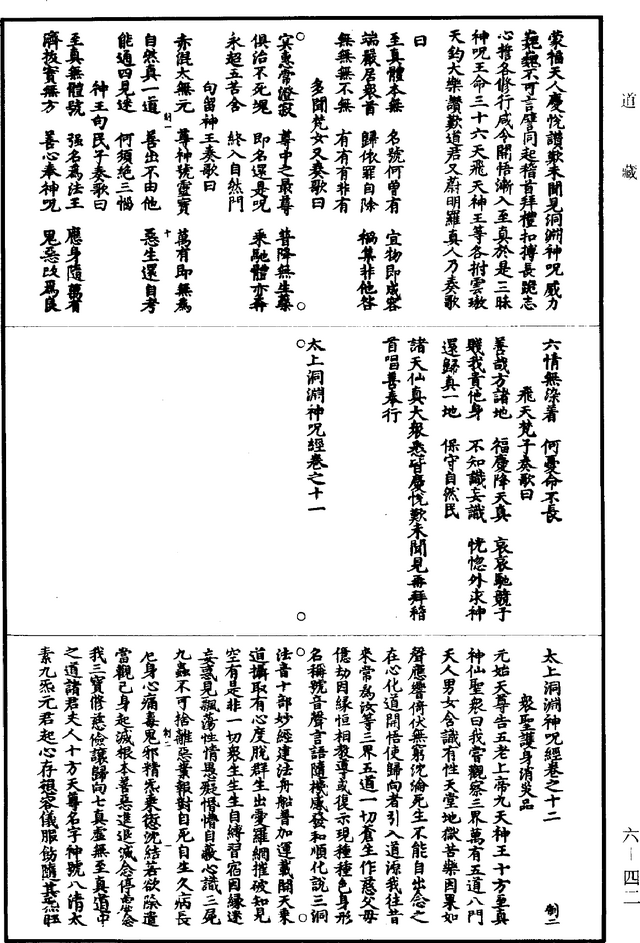 道藏
蒙福天人慶悅讚歎未聞見洞淵神呪威力
巍巍不可言譬同起稽首拜禮扣搏長跪志
心誓各修行咸令開悟漸入至真於是三昧
神呪王命三十六天飛天神王等各拊雲璈
天鈞大樂讚歎道君又蔚明羅真人乃奏歌
曰
至真體本無 名號何曾有 宜物即成客
端嚴居衆首 歸依罪自除 福集非他咎
無無無不無 有有有非有
多聞梵女又奏歌曰
冥惠常燈寂 尊中之最尊 普降無生藥
俱治不死魂 即名還是呪 乘馳體亦奔
永超五苦舍 終入自然門
句留神王奏歌曰
赤混太無元 尊神號靈寶 萬有即無為
自然真一道 善出不由他 惡生還自考
能通四見迷 何須絕三惱
神王向民子奏歌曰
至真無體號 强名為法王 應身隨萬有
濟拔實無方 善心奉神呪 鬼惡改為良
六情無染着 何憂命不長
飛天梵子奏歌曰
善哉方諸地 福慶降天真 哀哀馳競子
賤我貴他身 不知識妄識 恍惚外求神
還歸真一地 保守自然民
諸天仙真大衆悉皆慶悅歎未聞見再拜稽
首唱善奉行
太上洞淵神呪經卷之十一
太上洞淵神呪經卷之十二 制二
衆聖護身消災品
元始天尊告五老上帝九天神王十方至真
神仙聖衆曰我嘗觀察三界萬有五道八門
天人男女含識有性天堂地獄苦樂因果如
聲應響倚伏無窮沈淪死生不能自出念之
在心化道開悟使歸向者引入道源我往昔
來常為汝等三界五道一切蒼生作慈父母
億劫因緣恒相教導或復示現種種色身形
名稱號音聲言語隨機感發和順化說三洞
法音十部妙經建法舟船普加運載開天秉
道攝取有心度脫群生出愛羅網摧破知見
空有是非一切衆生生生自縛習宿因緣迷
妄惑見飄蕩性情愚癡惛懵自蔽心識三尸
九蟲不可捨離惡業報對自死自生久病長
尼身心痛毒鬼邪精炁乘衝沈結若欲除遣
當觀己身起滅根本善惡進退滅念停思念
我三寶修慈儉讓歸向七真虛無至真道中
之道諸君丈人十方天尊名字神號八清太
素九炁元君起心存想容儀服飾隨其炁旺
六—四二